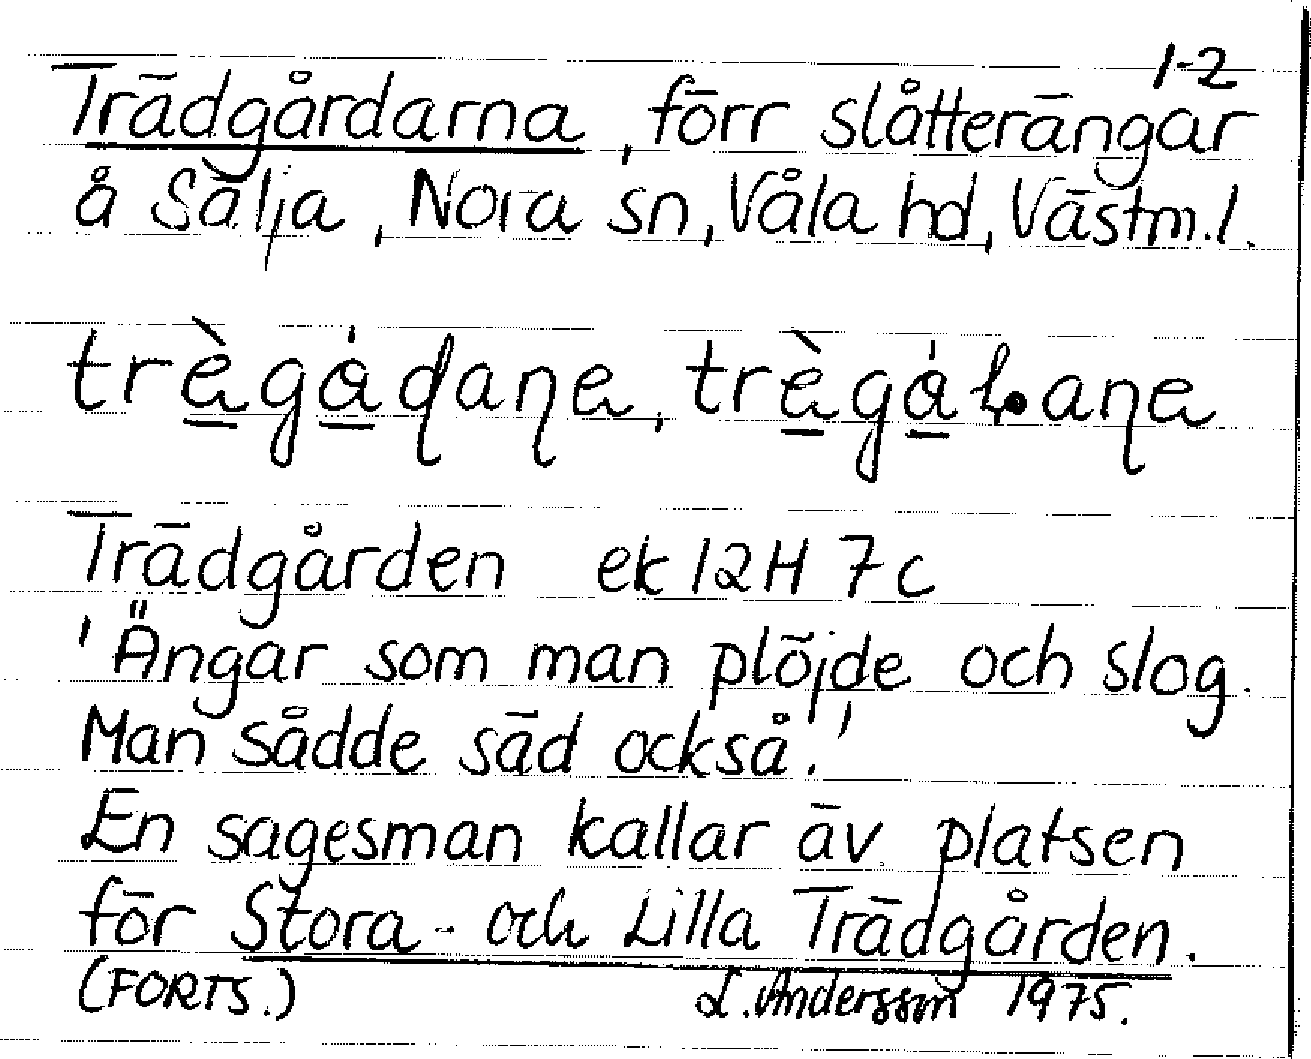 1-2
Trädgårdarna, förr slåtterängar
å Sälja, Nora sn, Våla hd, Västm.l.
trègådane, trègåɫane
Trädgården ek 12H 7c
'Ängar som man plöjde och slog.
Man sådde säd också.'
En sagesman kallar äv. platsen
för Stora- och Lilla Trädgården.
(FORTS.) L. Andersson 1975.